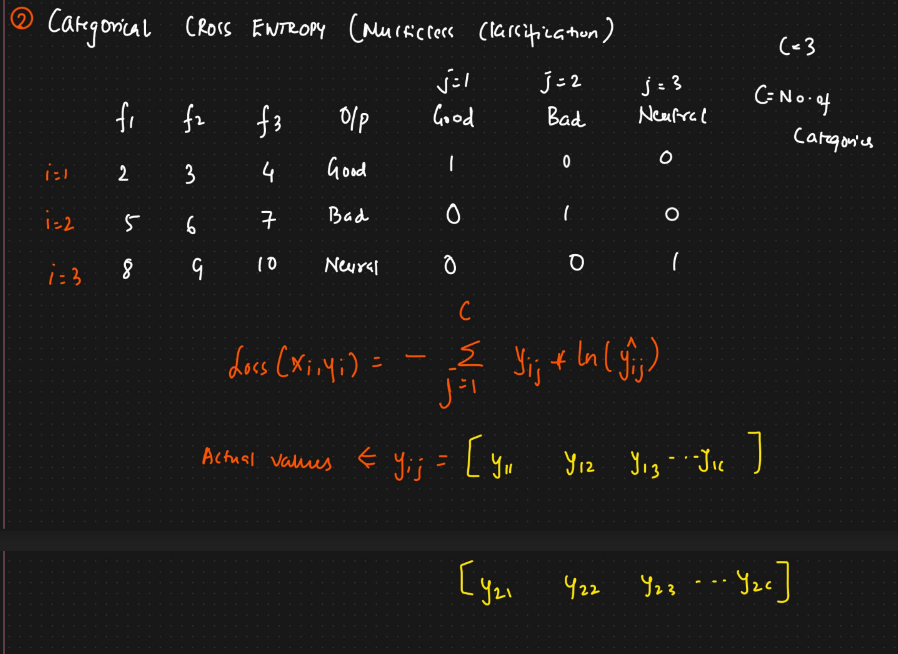 ② Categorical CROSS ENTROPY (Multiclass Classification)
C=3
j=1 j=2 j=3
C= No. of
f1 f2 f3 O/p Good Bad Neutral
Categories
i=1 2 3 4 Good 1 0 0
i=2 5 6 7 Bad 0 1 0
i=3 8 9 10 Neural 0 0 1
Loss (xi, yi) = - Σ_{j=1}^{C} yij * ln(ŷij)
Actual values ⇐ yij = [y11 y12 y13 ---y1c]
[y21 y22 y23 --- y2c]